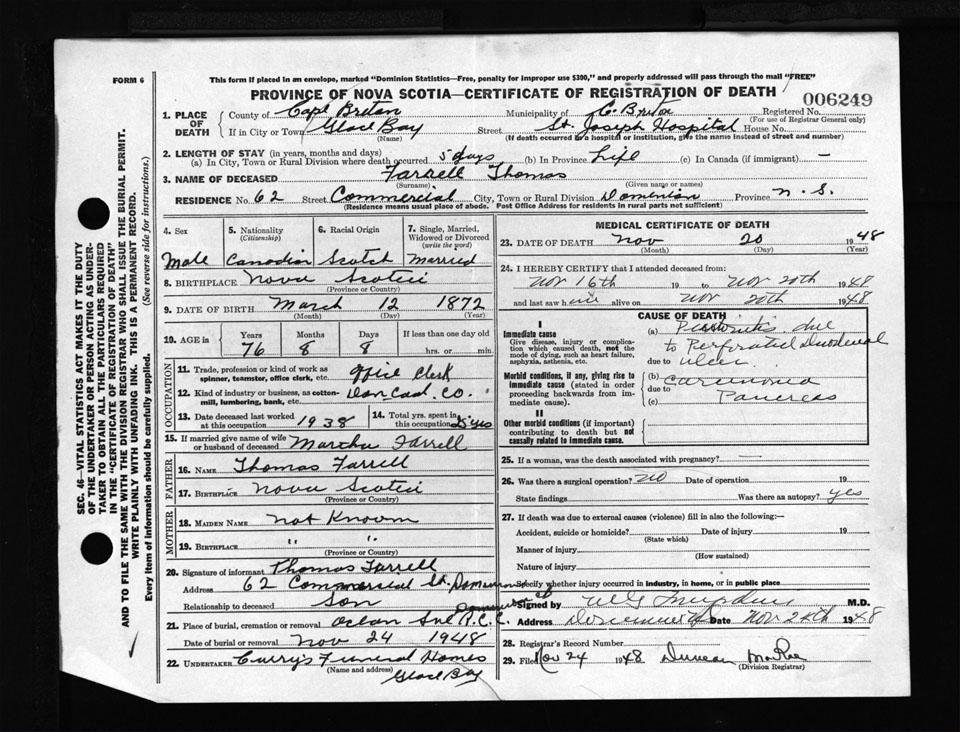 FORM 6
This form if placed in an envelope, marked "Dominion Statistics—Free, penalty for improper use $300," and properly addressed will pass through the mail "FREE"
PROVINCE OF NOVA SCOTIA—CERTIFICATE OF REGISTRATION OF DEATH
006249
1. PLACE OF DEATH
County of Cape Breton Municipality of C. Breton Registered No.
(For use of Registrar General only)
If in City or Town Glace Bay Street St. Joseph Hospital House No.
(Name) (If death occurred in a hospital or institution, give the name instead of street and number)
2. LENGTH OF STAY (in years, months and days)
(a) In City, Town or Rural Division where death occurred 5 days (b) In Province Life (c) In Canada (if immigrant) —
3. NAME OF DECEASED Farrell Thomas
(Surname) (Given name or names)
RESIDENCE No. 62 Street Commercial City, Town or Rural Division Dominion Province N.S.
(Residence means usual place of abode. Post Office Address for residents in rural parts not sufficient)
4. Sex Male
5. Nationality (Citizenship) Canadian
6. Racial Origin Scotch
7. Single, Married, Widowed or Divorced (write the word) Married
8. BIRTHPLACE Nova Scotia
(Province or Country)
9. DATE OF BIRTH March 12 1872
(Month) (Day) (Year)
10. AGE in Years Months Days If less than one day old
76 8 8 hrs. or min.
OCCUPATION
11. Trade, profession or kind of work as spinner, teamster, office clerk, etc. Office Clerk
12. Kind of industry or business, as cotton-mill, lumbering, bank, etc. Dom Coal Co.
13. Date deceased last worked at this occupation 1938
14. Total yrs. spent in this occupation yrs
15. If married give name of wife or husband of deceased Martha Farrell
FATHER
16. NAME Thomas Farrell
17. BIRTHPLACE Nova Scotia
(Province or Country)
MOTHER
18. MAIDEN NAME Not Known
19. BIRTHPLACE " "
(Province or Country)
20. Signature of informant Thomas Farrell
Address 62 Commercial St. Dominion
Relationship to deceased Son
21. Place of burial, cremation or removal R.C.C. Dominion
Date of burial or removal Nov 24 1948
22. UNDERTAKER Curry's Funeral Homes
(Name and address) Glace Bay
MEDICAL CERTIFICATE OF DEATH
23. DATE OF DEATH Nov 20 1948
(Month) (Day) (Year)
24. I HEREBY CERTIFY that I attended deceased from:
Nov 16th 19 to Nov 20th 1948
and last saw him alive on Nov 20th 1948
CAUSE OF DEATH
I
Immediate cause
Give disease, injury or complication which caused death, not the mode of dying, such as heart failure, asphyxia, asthenia, etc.
(a) Peritonitis due
to Perforated Duodenal
due to ulcer
Morbid conditions, if any, giving rise to immediate cause (stated in order proceeding backwards from immediate cause).
(b) Carcinoma
due to
(c) Pancreas
II
Other morbid conditions (if important) contributing to death but not causally related to immediate cause.
25. If a woman, was the death associated with pregnancy? —
26. Was there a surgical operation? no Date of operation 19
State findings Was there an autopsy? yes
27. If death was due to external causes (violence) fill in also the following:—
Accident, suicide or homicide? Date of injury 19
(State which)
Manner of injury
(How sustained)
Nature of injury
Specify whether injury occurred in industry, in home, or in public place
Signed by M.D.
Address Date Nov 24th 1948
28. Registrar's Record Number
29. Filed Nov 24 1948 Duncan MacRae
(Division Registrar)
SEC. 46—VITAL STATISTICS ACT MAKES IT THE DUTY
OF THE UNDERTAKER OR PERSON ACTING AS UNDER-
TAKER TO OBTAIN ALL THE PARTICULARS REQUIRED
IN THE "CERTIFICATE OF REGISTRATION OF DEATH"
AND TO FILE THE SAME WITH THE DIVISION REGISTRAR WHO SHALL ISSUE THE BURIAL PERMIT.
WRITE PLAINLY WITH UNFADING INK. THIS IS A PERMANENT RECORD.
Every item of information should be carefully supplied. (See reverse side for instructions.)